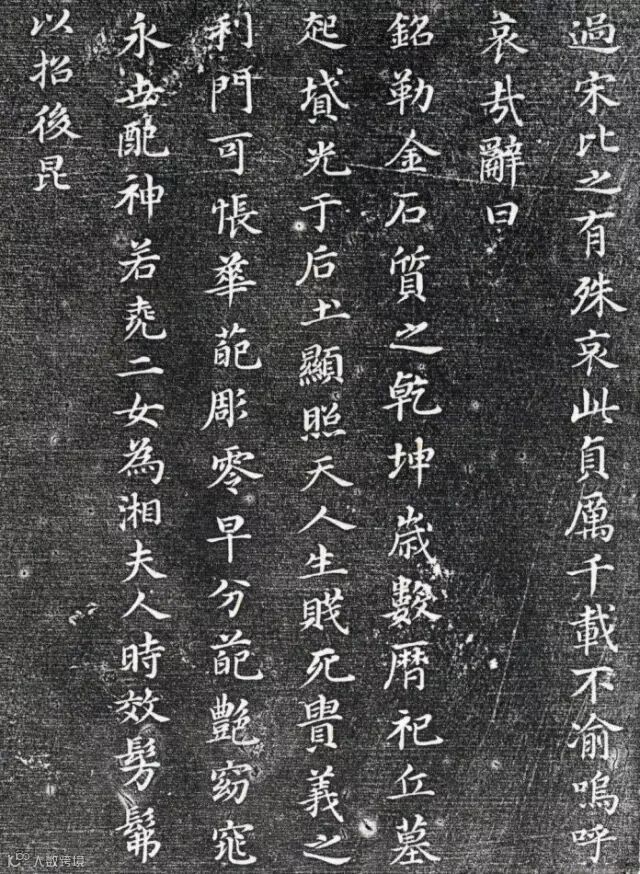 過宋比之有殊哀此貞厲千載不渝嗚呼
哀哉辭曰
銘勒金石質之乾坤歲數暦祀丘墓
起墳光于后土顯照天人生賤死貴義之
利門可悵華葩彫零早分葩艶窈窕
永世配神若堯二女為湘夫人時效髣髴
以招後昆
大数跨境